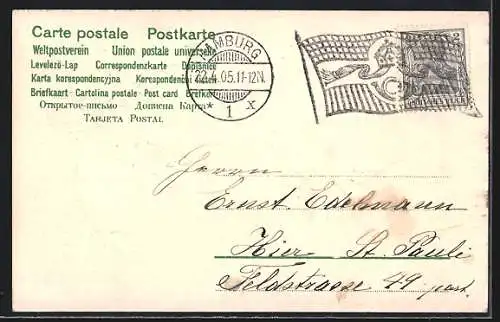 Carte postale Postkarte
Weltpostverein Union postale universelle
Levelező-Lap Correspondenzkarte Dopisnice
Karta korespondencyjna Korespondenční lístek
Briefkaart Cartolina postale Post card Brefkort
Открытое-письмо Дописна Карта
TARJETA POSTAL
HAMBURG
22.4.05.11-12N.
* 1 x
2
Herrn
Ernst Edelmann
Hier St. Pauli
Feldstrasse 49 part.